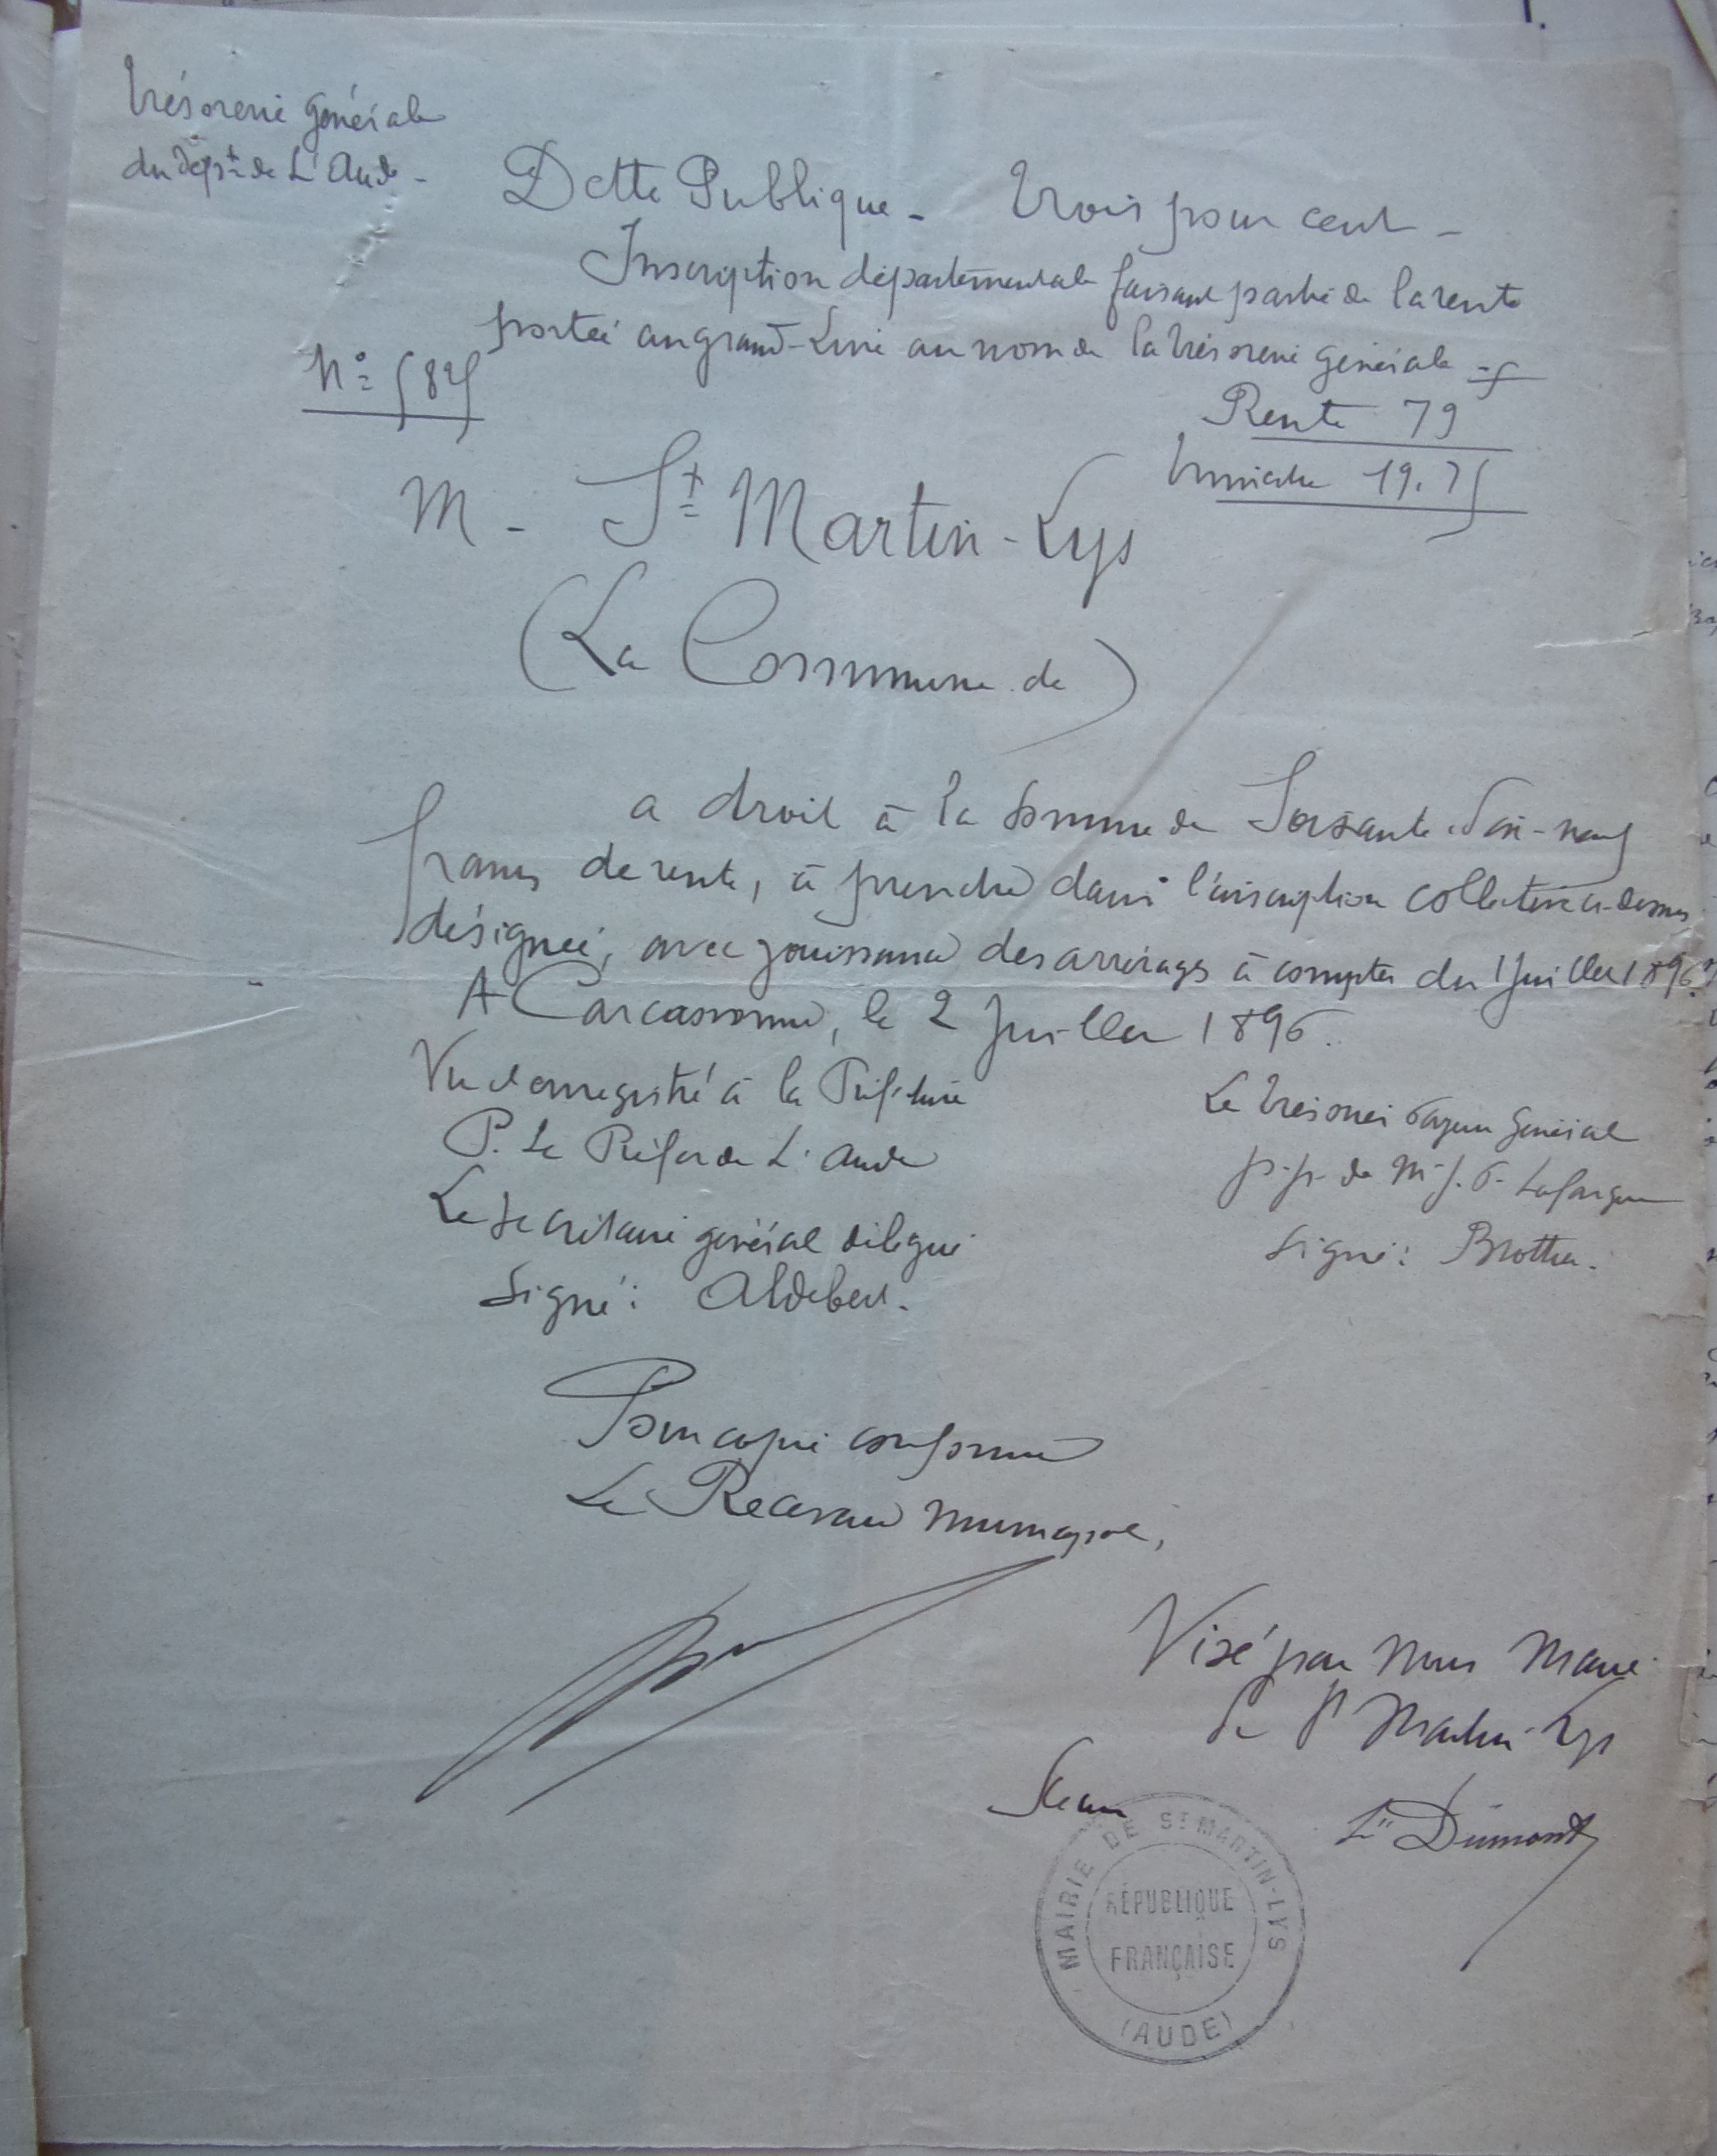 Trésorerie Générale
du Dépt de L'Aude -
Dette Publique - Trois pour cent -
Inscription départementale faisant partie de la rente
portée au grand-Livre au nom de la Trésorerie générale
N° 5825
Rente 79
Trimestre 19.75
M - St Martin-Lys
(La Commune de)
a droit à la somme de Soixante-Dix-neuf
francs de rente, à prendre dans l'inscription collective ci-dessus
désignée, avec jouissance des arrérages à compter du 1 Juillet 1896.
A Carcassonne, le 2 Juillet 1896.
Vu et enregistré à la Préfecture
P. Le Préfet de L'Aude
Le Secrétaire général délégué
Signé: Aldebert.
Le Trésorier Payeur Général
p.p. de M. J. P. Lafargue
Signé:
Pour copie conforme
Le Receveur Municipal,
Visé par Nous Maire
de St Martin-Lys
Dumont
MAIRIE DE ST MARTIN-LYS
RÉPUBLIQUE
FRANÇAISE
(AUDE)